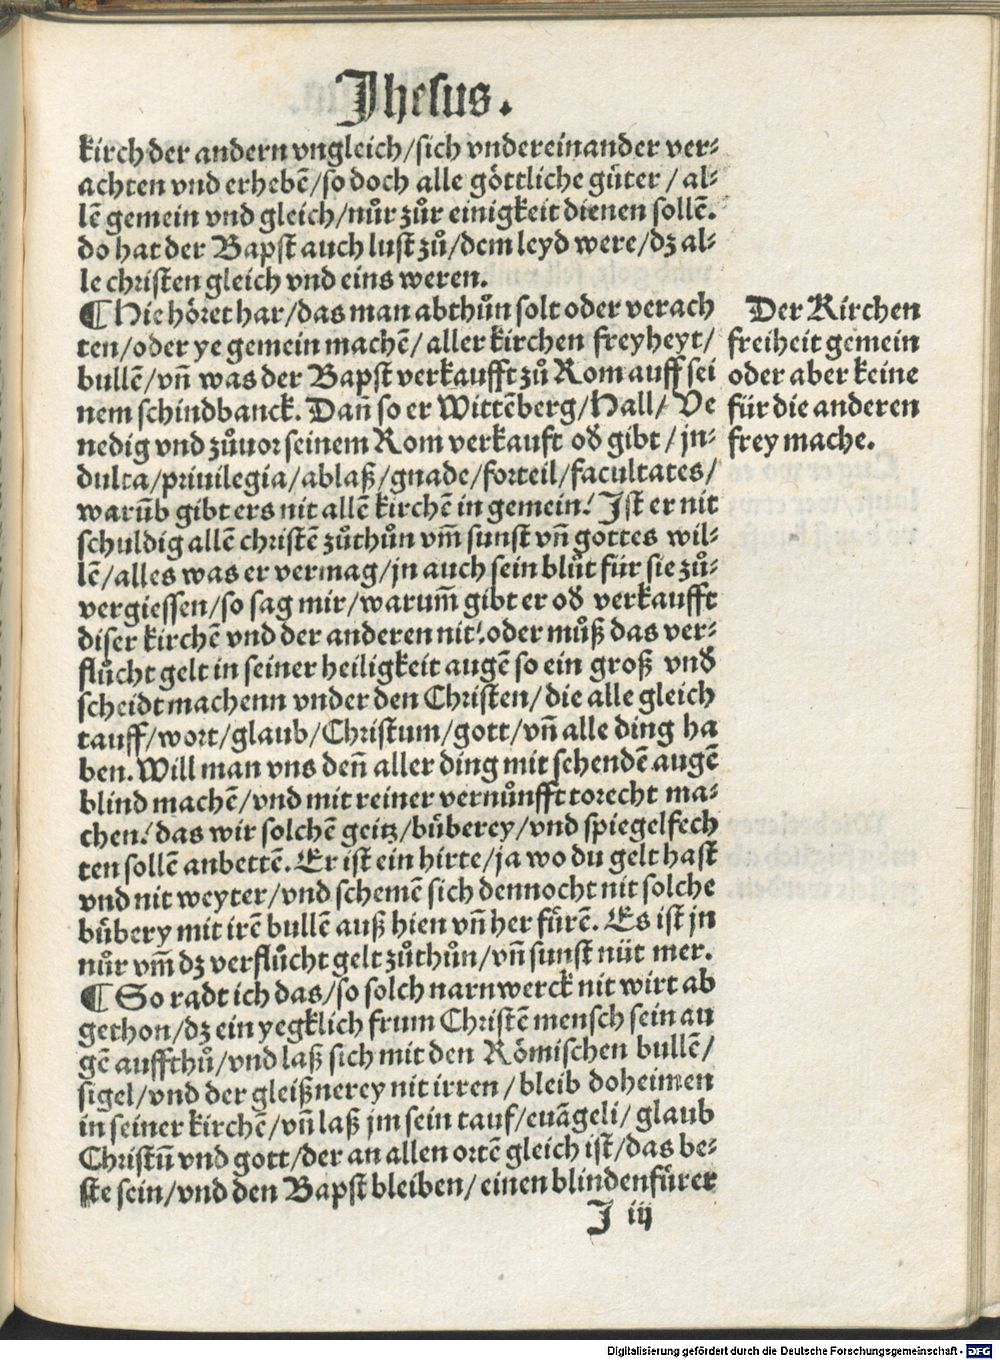 Jhesus.
kirch der andern vngleich/sich vndereinander ver⸗
achten vnd erhebē/so doch alle göttliche güter/al⸗
lē gemein vnd gleich/nůr zůr einigkeit dienen sollē.
do hat der Bapst auch lust zů/dem leyd were/dz al⸗
le christen gleich vnd eins weren.
¶Hie höret har/das man abthůn solt oder verach
ten/oder ye gemein machē/aller kirchen freyheyt/
bullē/vn̄ was der Bapst verkaufft zů Rom auff sei
nem schindbanck. Dan̄ so er Wittēberg/Hall/Ve
nedig vnd zůuor seinem Rom verkauft oď gibt/jn⸗
dulta/priuilegia/ablaß/gnade/forteil/facultates/
warūb gibt ers nit allē kirchē in gemein? Jst er nit
schuldig allē christē zůthůn vm̄ sunst vn̄ gottes wil⸗
lē/alles was er vermag/jn auch sein blůt für sie zů⸗
vergiessen/so sag mir/warum̄ gibt er oď verkaufft
diser kirchē vnd der anderen nit? oder můß das ver⸗
flůcht gelt in seiner heiligkeit augē so ein groß vnď
scheidt machenn vnder den Christen/die alle gleich
tauff/wort/glaub/Christum/gott/vn̄ alle ding ha
ben. Will man vns den̄ aller ding mit sehendē augē
blind machē/vnd mit reiner vernůnfft torecht ma⸗
chen? das wir solchē geitz/büberey/vnd spiegelfech
ten sollē anbettē. Er ist ein hirte/ja wo du gelt hast
vnd nit weyter/vnd schemē sich dennocht nit solche
bübery mit irē bullē auß hien vn̄ her fürē. Es ist jn
nůr vm̄ dz verflůcht gelt zůthůn/vn̄ sunst nüt mer.
¶ So radt ich das/so solch narnwerck nit wirt ab
gethon/dz ein yegklich frum Christē mensch sein au
gē auffthů/vnd laß sich mit den Römischen bullē/
sigel/vnd der gleißnerey nit irren/bleib doheimen
in seiner kirchē/vn̄ laß jm sein tauf/euāgeli/glaub
Christū vnd gott/der an allen ortē gleich ist/das be⸗
ste sein/vnd den Bapst bleiben/einen blindenfürer
J iij
Der Kirchen
freiheit gemein
oder aber keine
für die anderen
frey mache.
Digitalisierung gefördert durch die Deutsche Forschungsgemeinschaft - DFG